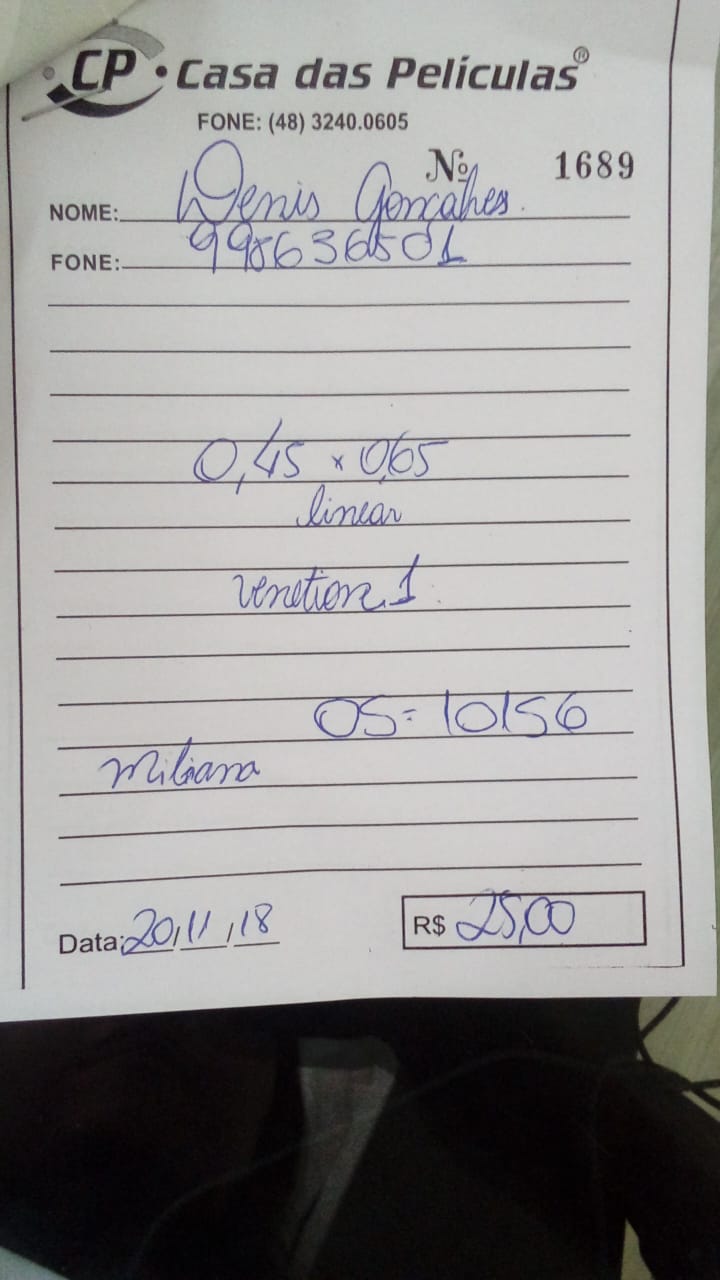 CP • Casa das Películas®
FONE: (48) 3240.0605
Nº 1689
NOME: Denis Gonçalves
FONE: 998636501
0,45 x 0,65
linear
OS= 10156
Data: 20/11/18
R$ 25,00